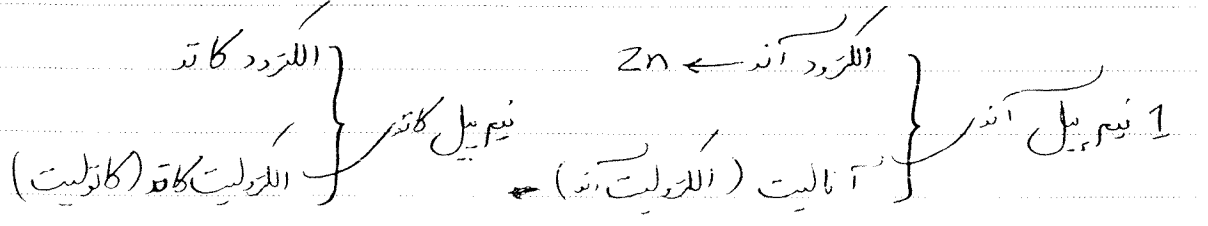 1 نیم پیل آند
الکترود آند ← Zn
آنالیت (الکترولیت آند) ←
نیم پیل کاتد
الکترود کاتد
الکترولیت کاتد (کاتولیت)